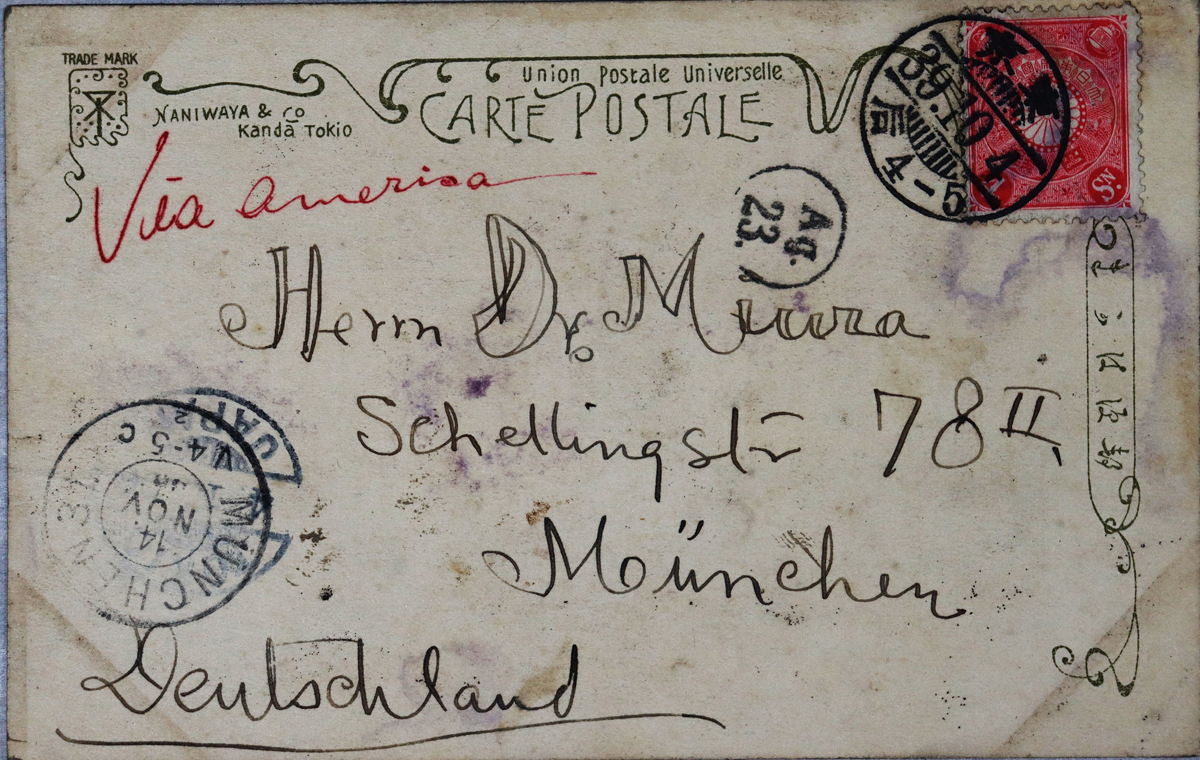 TRADE MARK
NANIWAYA & CO
KANDA TOKIO
Union Postale Universelle
CARTE POSTALE
39.10.4
后 4-5
Via America
Ag.
23.
Herrn Dr. Miura
Schellingstr 78 II.
München
Deutschland
MÜNCHEN
14.
NOV
V4-5